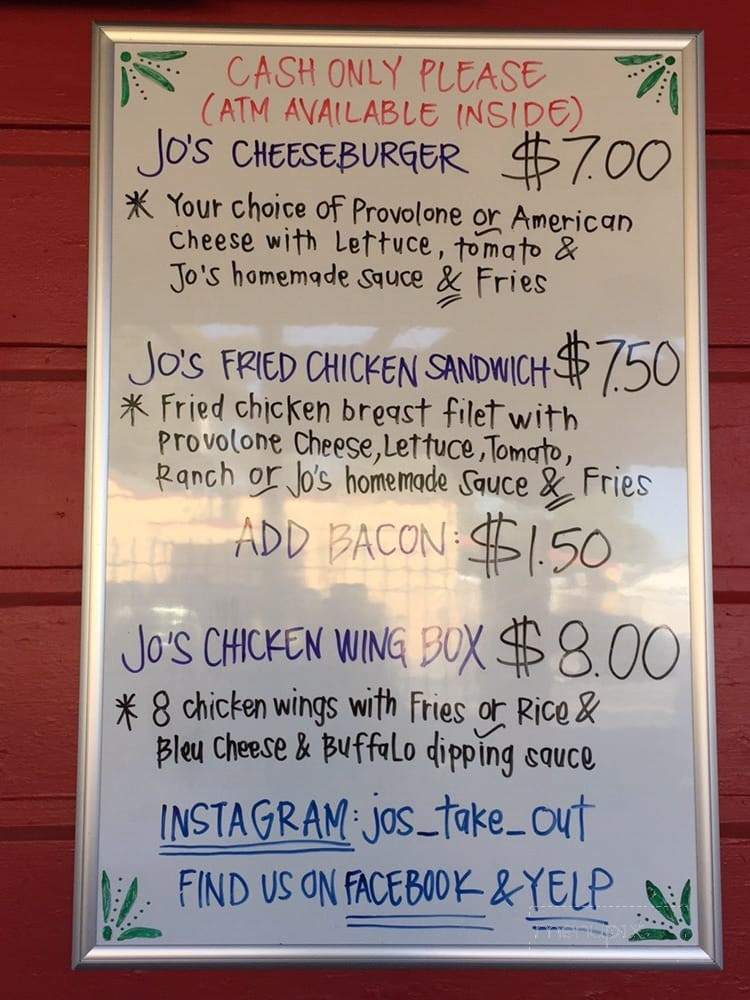 CASH ONLY PLEASE
(ATM AVAILABLE INSIDE)
JO'S CHEESEBURGER $7.00
* Your choice of Provolone or American
Cheese with Lettuce, tomato &
Jo's homemade sauce & Fries
JO'S FRIED CHICKEN SANDWICH $7.50
* Fried chicken breast filet with
Provolone Cheese, Lettuce, Tomato,
Ranch or Jo's homemade Sauce & Fries
ADD BACON: $1.50
JO'S CHICKEN WING BOX $8.00
* 8 chicken wings with Fries or Rice &
Bleu Cheese & Buffalo dipping sauce
INSTAGRAM: jos_take_out
FIND US ON FACEBOOK & YELP
menupix